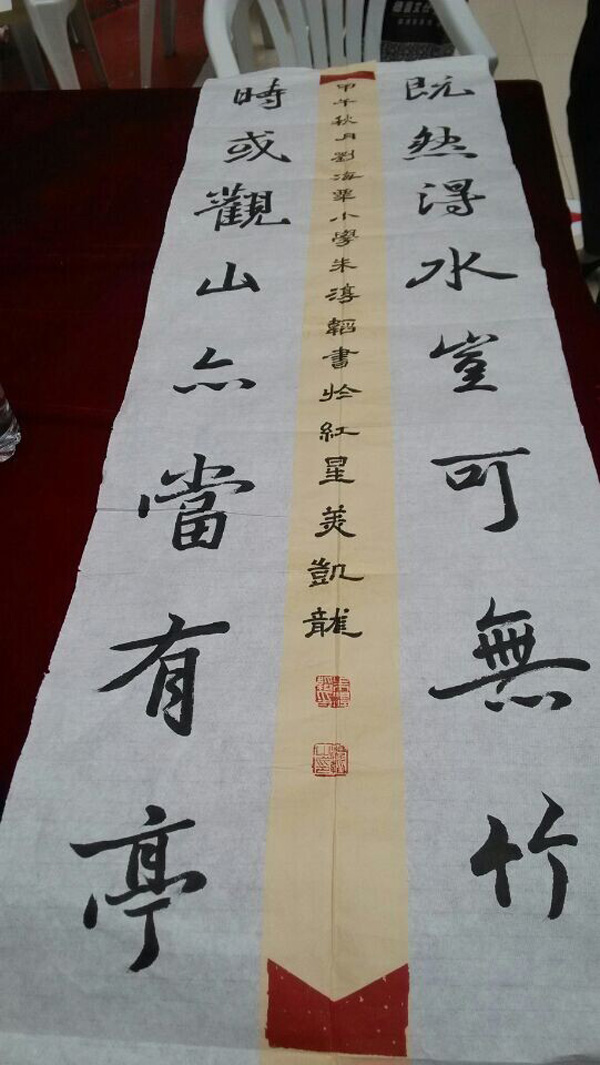 既然得水豈可無竹
甲午秋月劉海粟小學朱淳韜書於紅星美凱龍
時或觀山亦當有亭